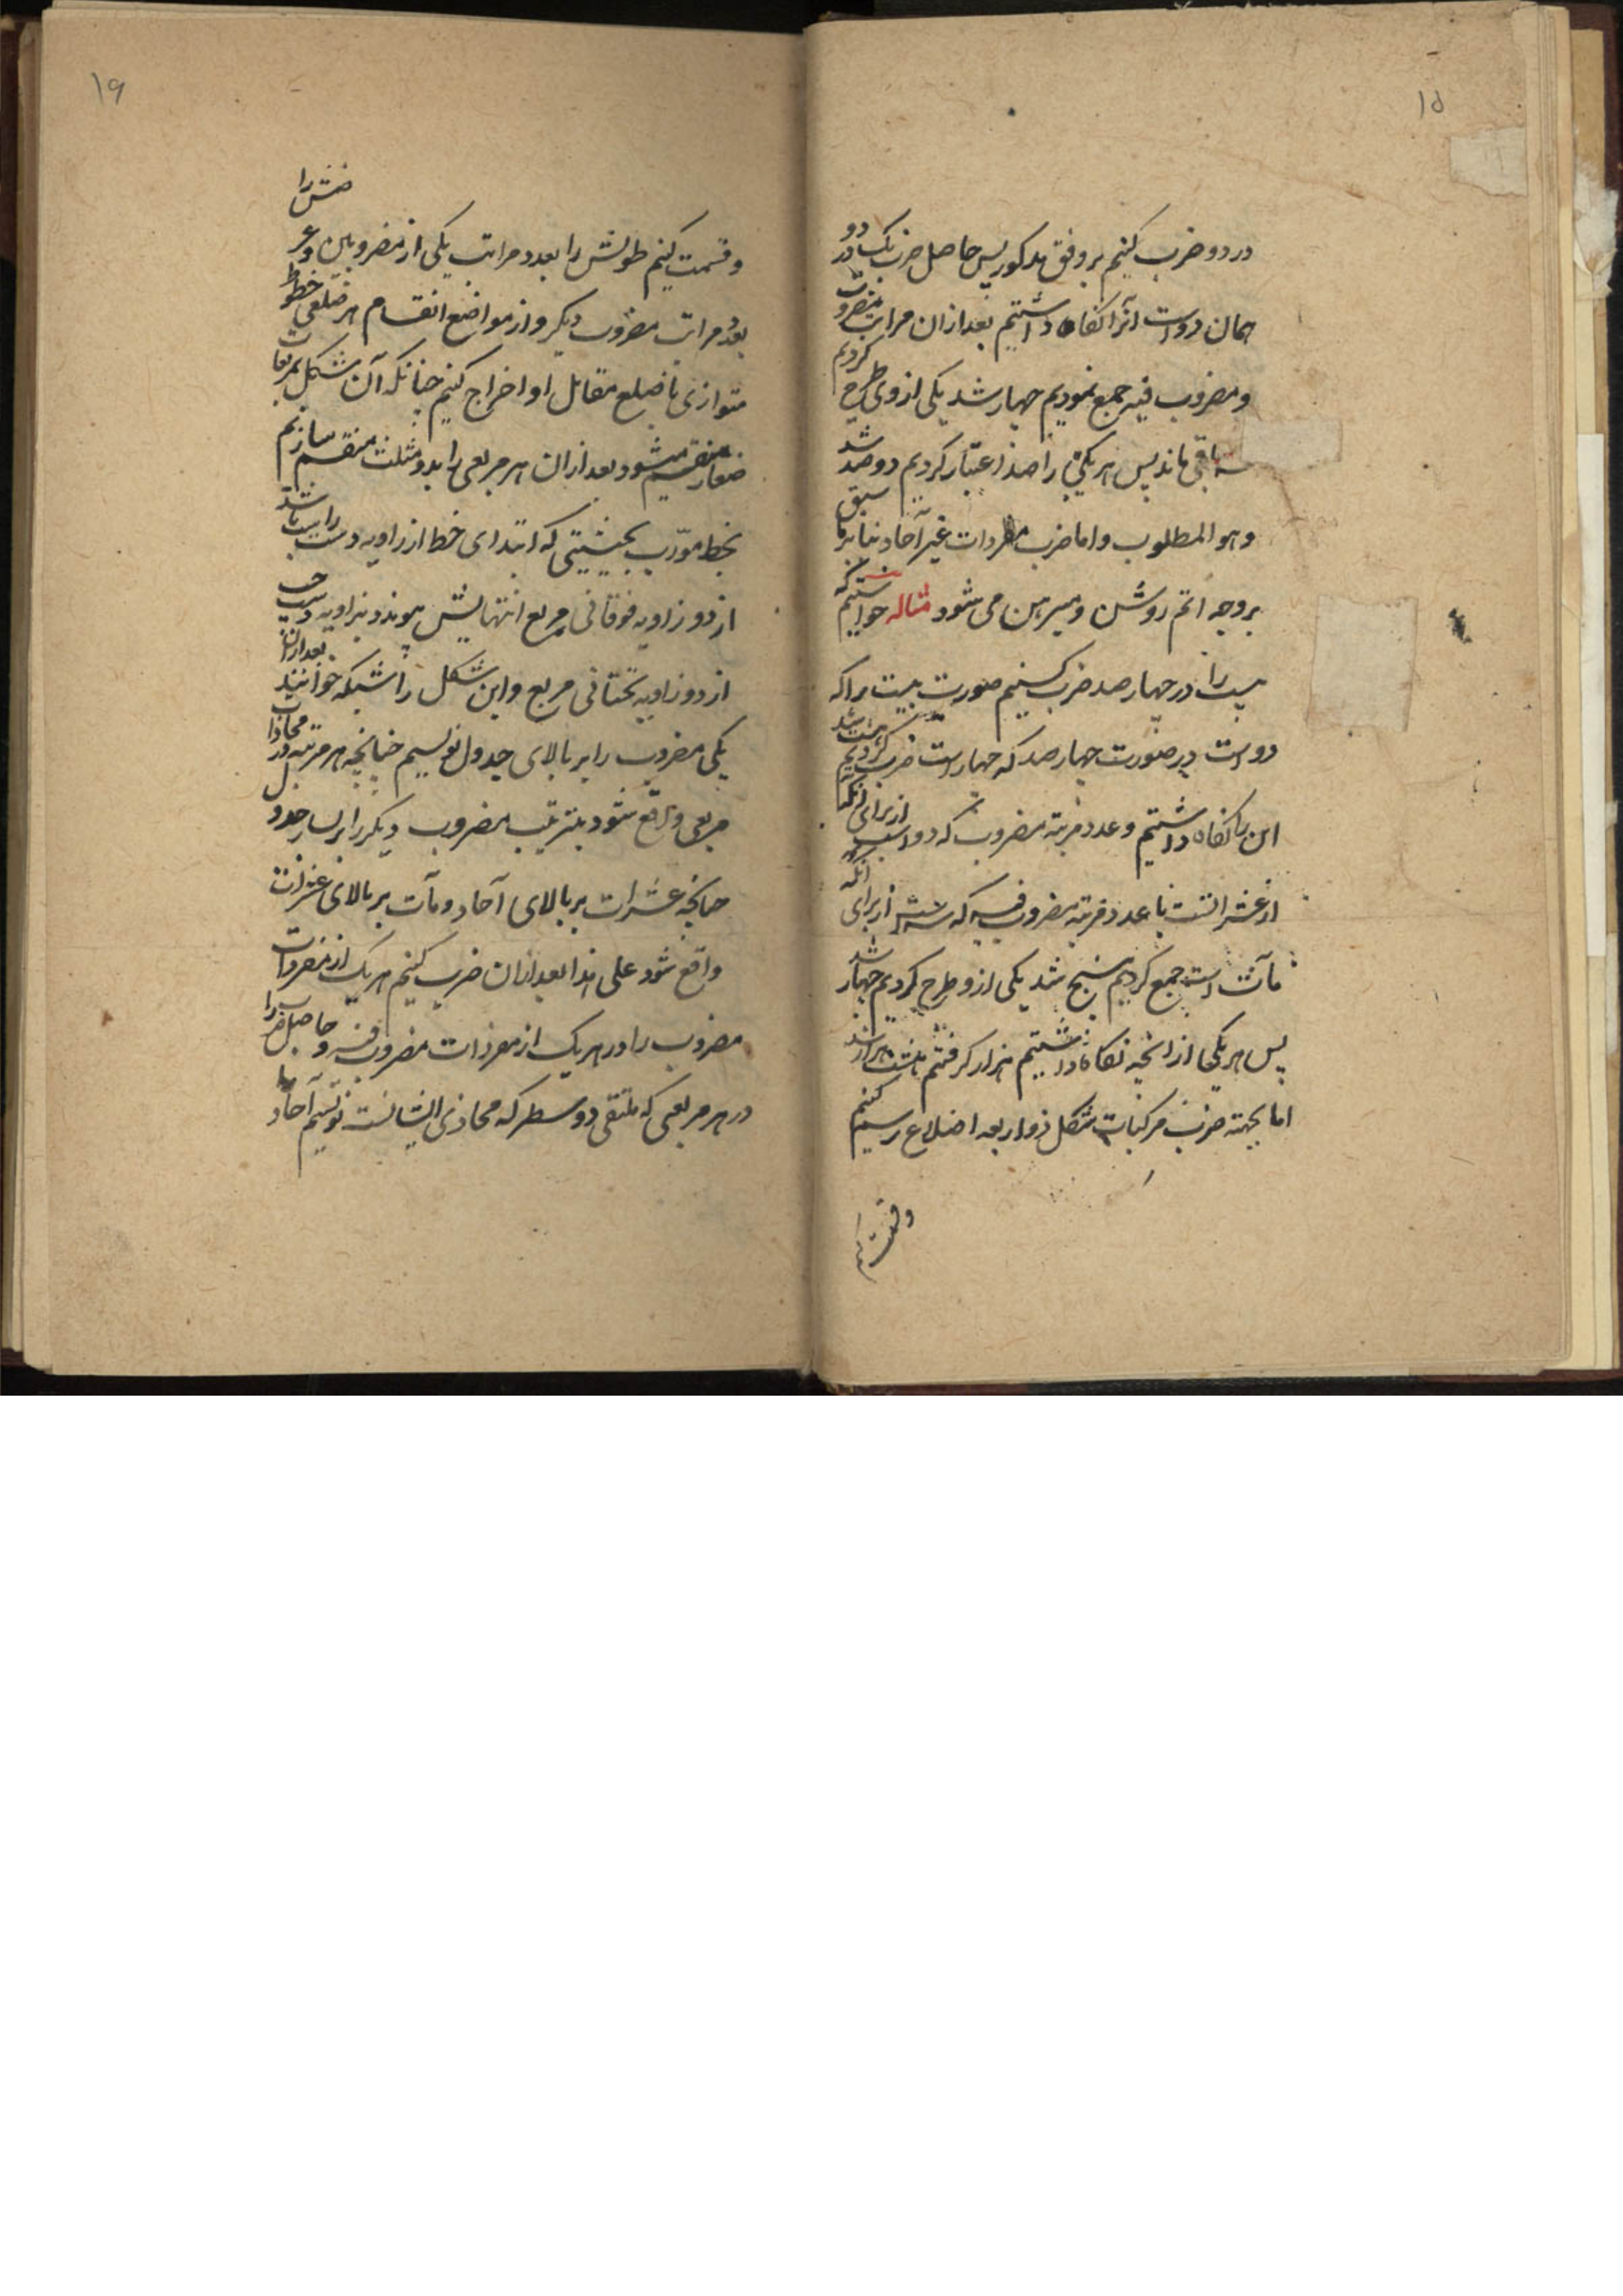 ۱۵
در دو ضرب کنیم بر وفق مذکور پس حاصل ضرب یک در دو
همان دو است آنرا نکاه داشتیم بعد از ان مراتب مضروب
و مضروب فیه جمع نمودیم چهار شد یکی از وی طرح کردیم
سه باقی ماند پس هر یکی را صد اعتبار کردیم دو صد شد
و هو المطلوب و اما ضرب مفردات غیر آحاد بنا بر ما سبق
بر وجه اتم روشن و مبرهن می شود مثاله خواستیم که
بیست را در چهار صد ضرب کنیم صورت بیست را که
دو است در صورت چهار صد که چهار است ضرب کردیم هشت شد
این را نکاه داشتیم و عدد مرتبه مضروب که دو است از برای آنکه
از عشرات است با عدد مرتبه مضروب فیه که سه است از برای آنکه
مآت است جمع کردیم پنج شد یکی از و طرح کردیم چهار شد
پس هر یکی از انچه نکاه داشتیم هزار کرفتیم هشت هزار شد
اما بجهته ضرب مرکبات شکل ذو اربعه اضلاع رسم کنیم
و قسمت
۱۶
و قسمت کنیم طولش را بعدد مراتب یکی از مضروبین و عرضش را
بعدد مراتب مضروب دیکر و از مواضع انقسام هر ضلعی خطوط
متوازی با ضلع مقابل او اخراج کنیم چنانکه آن شکل بمربعات
صغار منقسم میشود بعد از ان هر مربعی را بدو مثلث منقسم سازیم
بخط مورب بحیثیتی که ابتدای خط از زاویه دست راست باشد
از دو زاویه فوقانی مربع انتهایش پیوندد بزاویه دست چپ
از دو زاویه تحتانی مربع و این شکل را شبکه خوانند بعد از ان
یکی مضروب را بر بالای جدول نویسیم چنانچه هر مرتبه در محاذات
مربعی واقع شود بترتیب مضروب دیکر را بر یسار جدول
چنانچه عشرات بر بالای آحاد و مآت بر بالای عشرات
واقع شود علی هذا بعد از ان ضرب کنیم هر یک از مفردات
مضروب را در هر یک از مفردات مضروب فیه و حاصل ضرب را
در هر مربعی که ملتقی دو سطر که محاذی ایشانست نویسیم آحاد